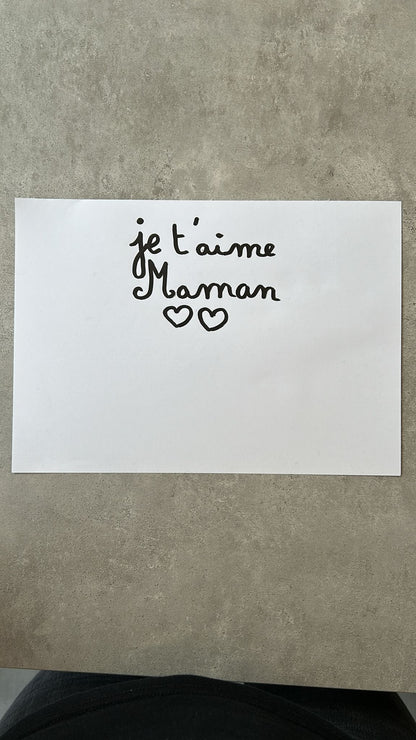 je t'aime
Maman